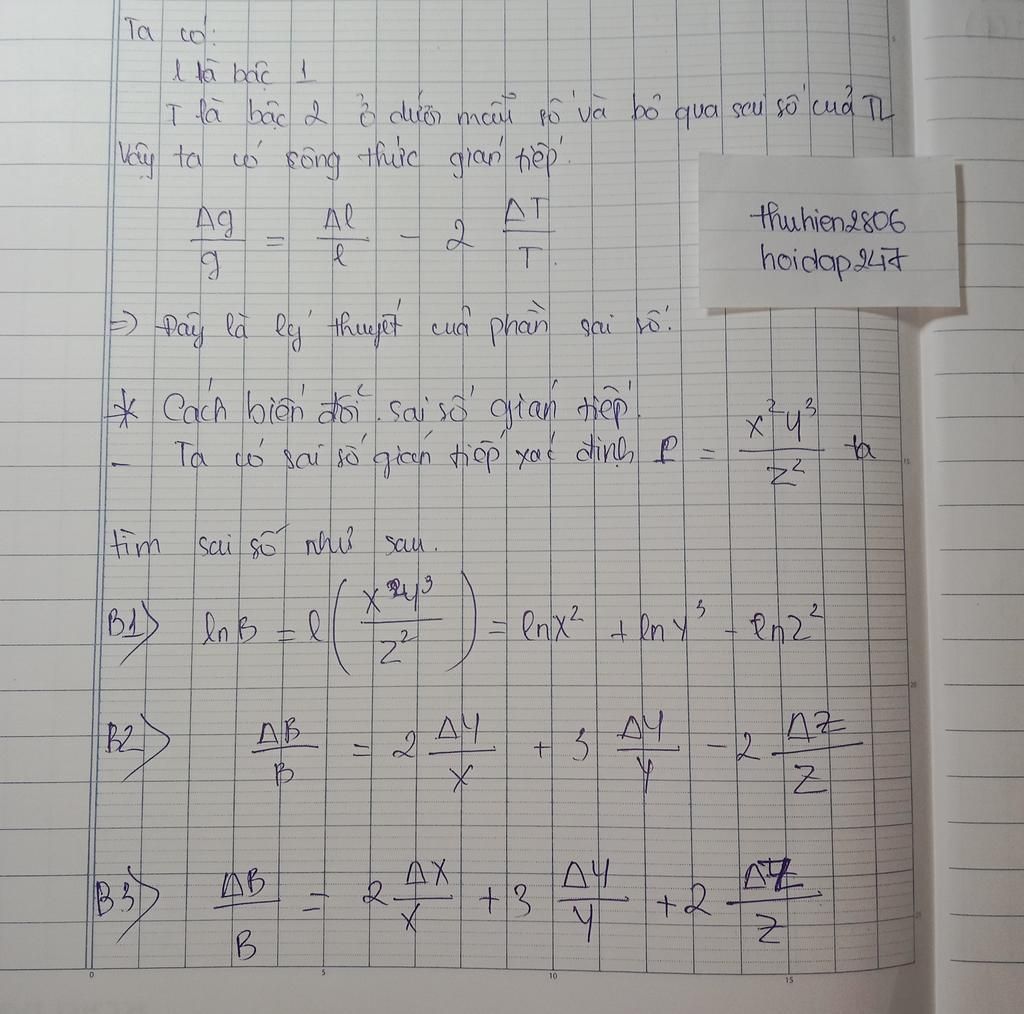 Ta có:
l là bậc 1
T là bậc 2 ở dưới mẫu số và bỏ qua sau số của TL
Vậy ta có công thức gián tiếp.
Δg/g = Δl/l - 2 ΔT/T.
thuhien2806
hoidap247
=> Đây là lý thuyết của phần sai số.
* Cách biến đổi sai số gián tiếp.
- Ta có sai số gián tiếp xác định P = x²y³/z² ta
tìm sai số như sau.
B1) lnB = l(x²y³/z²) = lnx² + lny³ - lnz²
B2) ΔB/B = 2 ΔY/X + 3 ΔY/Y - 2 ΔZ/Z
B3) ΔB/B = 2 ΔX/X + 3 ΔY/Y + 2 ΔZ/Z
0 5 10 15